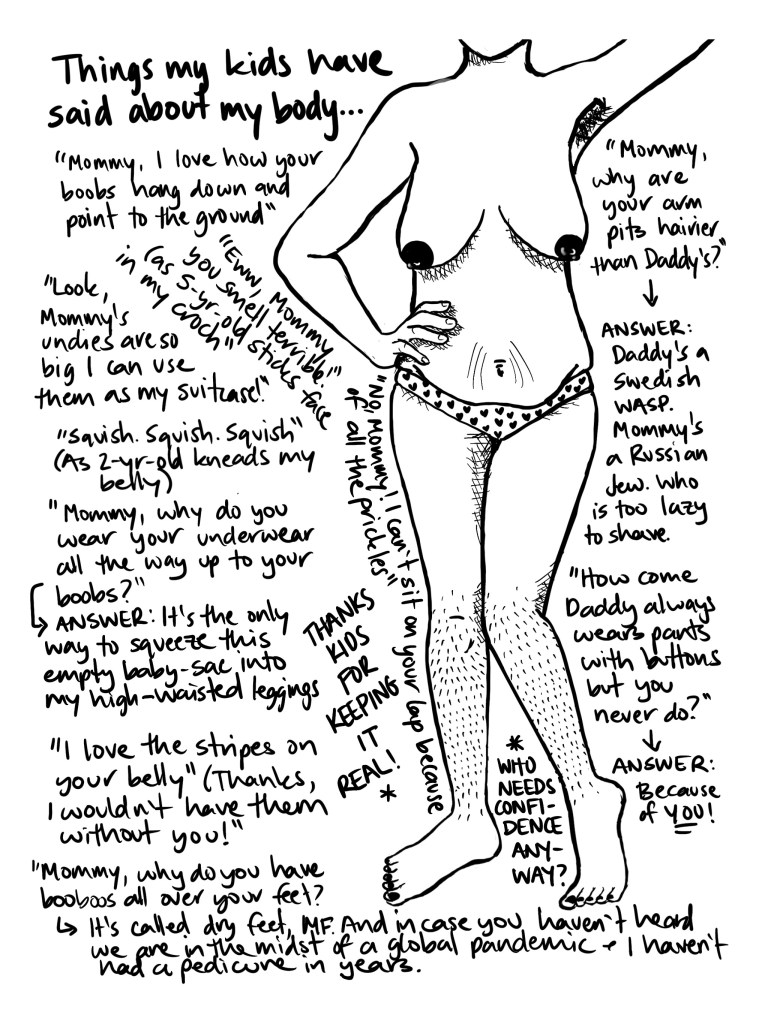 Things my kids have
said about my body...
"Mommy, I love how your
boobs hang down and
point to the ground"
"Eww, Mommy
you smell terrible."
(as 5-yr-old sticks face
in my croch"
"Look,
Mommy's
undies are so
big I can use
them as my suitcase!"
"Squish. Squish. Squish"
(As 2-yr-old kneads my
belly)
"Mommy, why do you
wear your underwear
all the way up to your
boobs?"
→ ANSWER: It's the only
way to squeeze this
empty baby-sac into
my high-waisted leggings
"I love the stripes on
your belly" (Thanks,
I wouldn't have them
without you!"
"Mommy, why do you have
booboos all over your feet?
↳ It's called dry feet, MF. And in case you haven't heard
we are in the midst of a global pandemic + I haven't
had a pedicure in years.
"No, Mommy! I can't sit on your lap because
of all the prickles"
THANKS
KIDS
FOR
KEEPING
IT
REAL!
*
*
WHO
NEEDS
CONFI-
DENCE
ANY-
WAY?
"Mommy,
why are
your arm
pits hairier
than Daddy's?"
↓
ANSWER:
Daddy's a
Swedish
WASP.
Mommy's
a Russian
Jew. Who
is too lazy
to shave.
"How come
Daddy always
wears pants
with buttons
but you
never do?"
↓
ANSWER:
Because
of YOU!